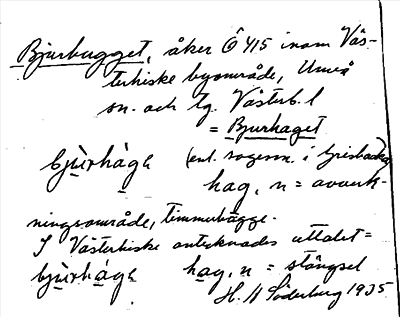 Bjurhagget, åker Ö 415 inom Väs-
terhiske byområde, Umeå
sn. och tg. Västerb. l
= Bjurhaget
bjùrhàga (enl. sagesm. i
hag, n = avverk-
ningsområde, timmerhägge.
I Västerhiske antecknades uttalet =
bjurhàga hag, n = stängsel
H. Söderburg 1935